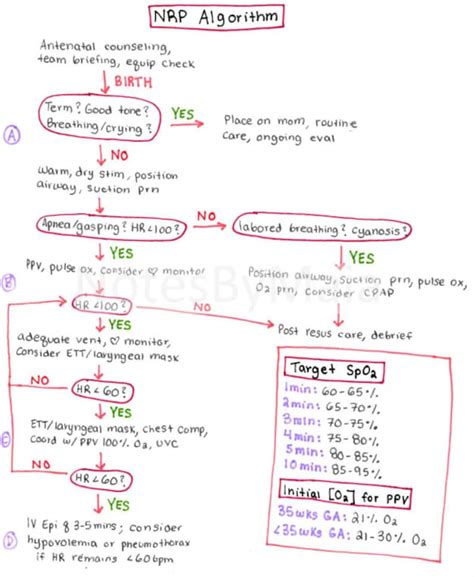 NRP Algorithm
Antenatal counseling,
team briefing, equip check
BIRTH
Term? Good tone?
Breathing/crying?
YES
Place on mom, routine
care, ongoing eval
A
NO
Warm, dry stim, position
airway, suction prn
Apnea/gasping? HR<100?
NO
labored breathing? cyanosis?
YES
YES
PPV, pulse ox, consider ♡ monitor
Position airway, suction prn, pulse ox,
O2 prn, consider CPAP
B
HR <100?
NO
Post resus care, debrief
YES
adequate vent, ♡ monitor,
Consider ETT/laryngeal mask
NO
HR<60?
YES
ETT/laryngeal mask, chest comp,
Coord w/ PPV 100% O2, UVC
C
NO
HR<60?
YES
IV Epi q 3-5mins; consider
hypovolemia or pneumothorax
if HR remains <60bpm
D
Target SpO2
1min: 60-65%
2min: 65-70%
3min: 70-75%
4min: 75-80%
5min: 80-85%
10min: 85-95%
Initial [O2] for PPV
35wks GA: 21% O2
<35wks GA: 21-30% O2